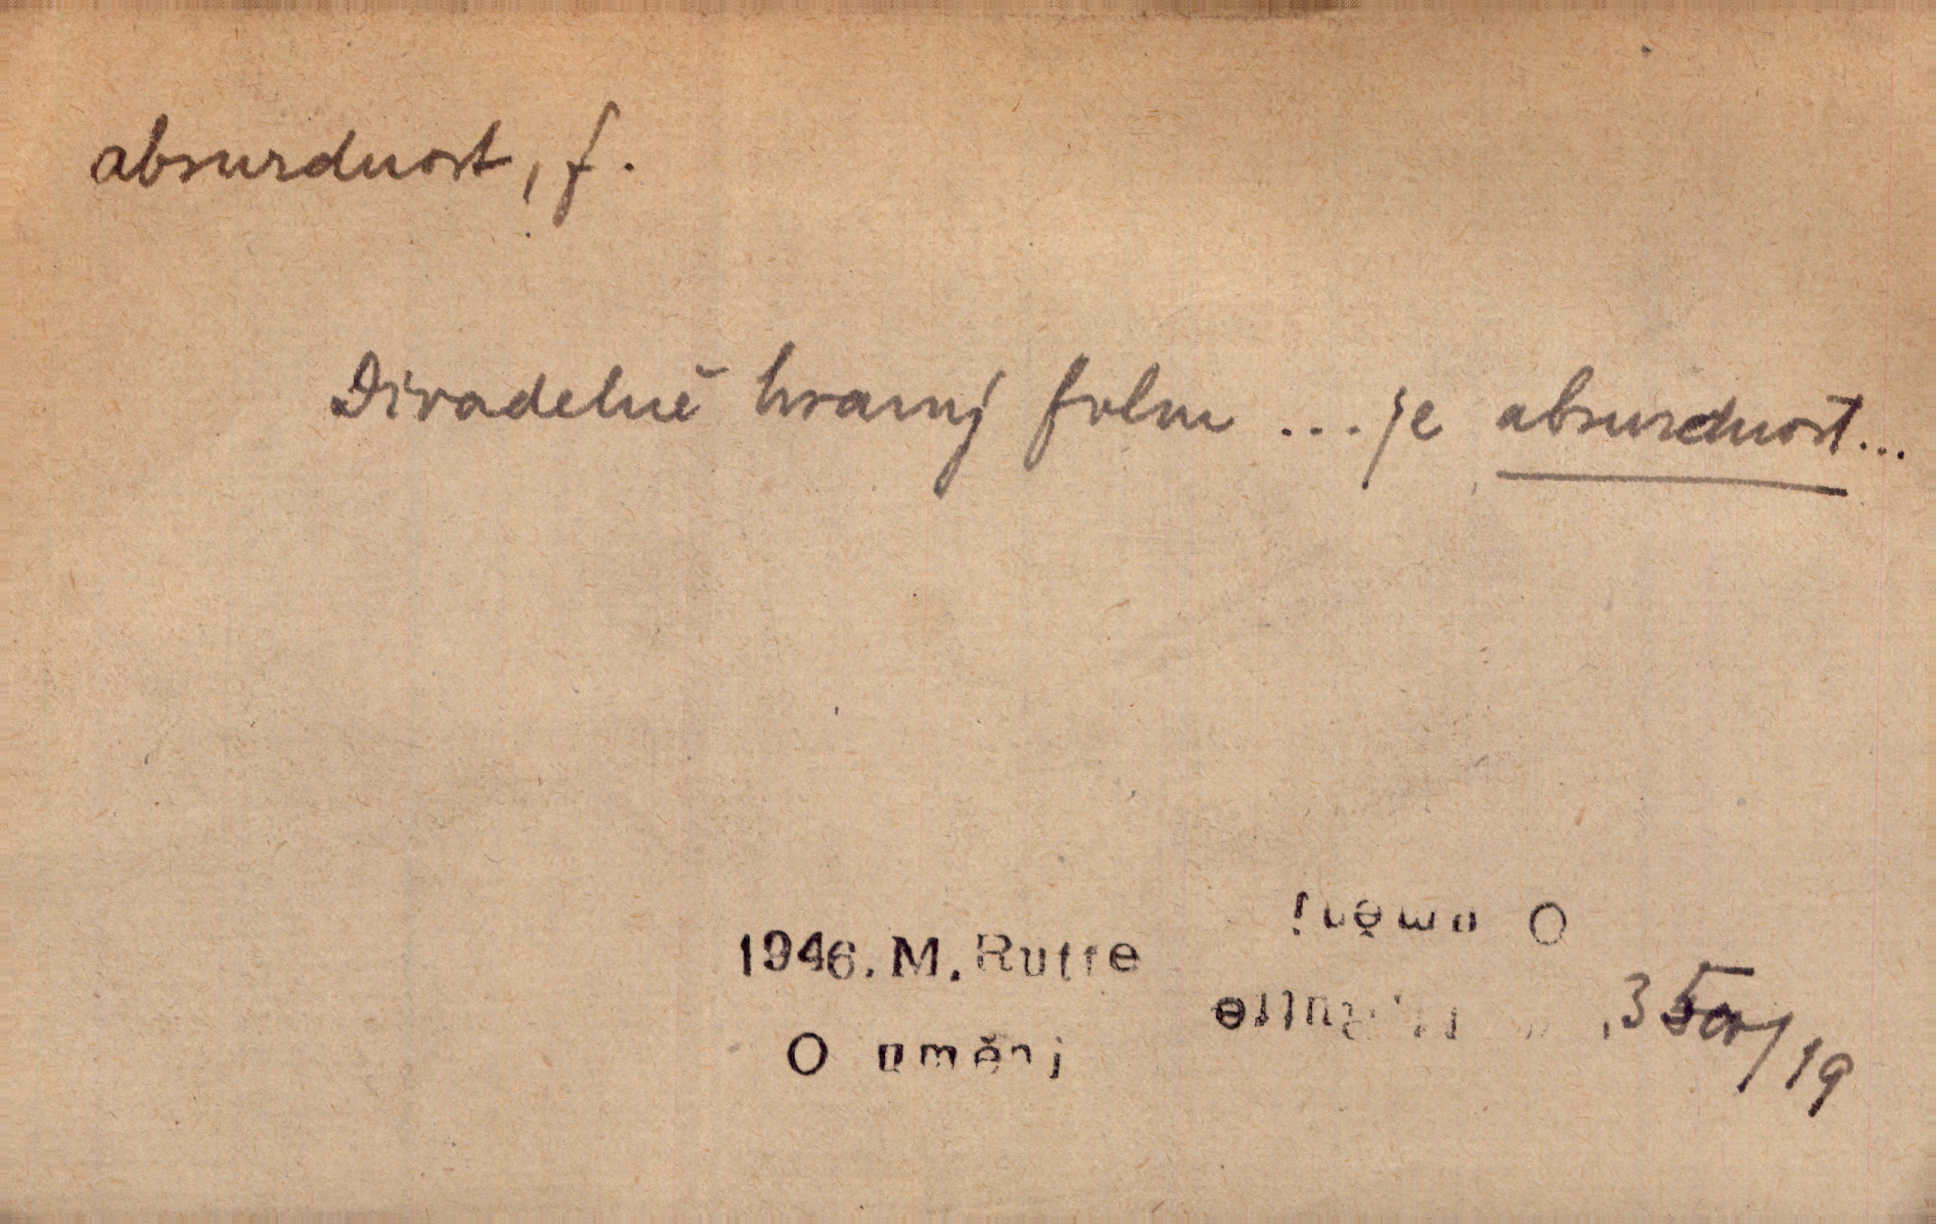 absurdnost, f.
Divadelně hraný film ... je absurdnost...
1946. M. Rutte
O umění
O umění
Rutte